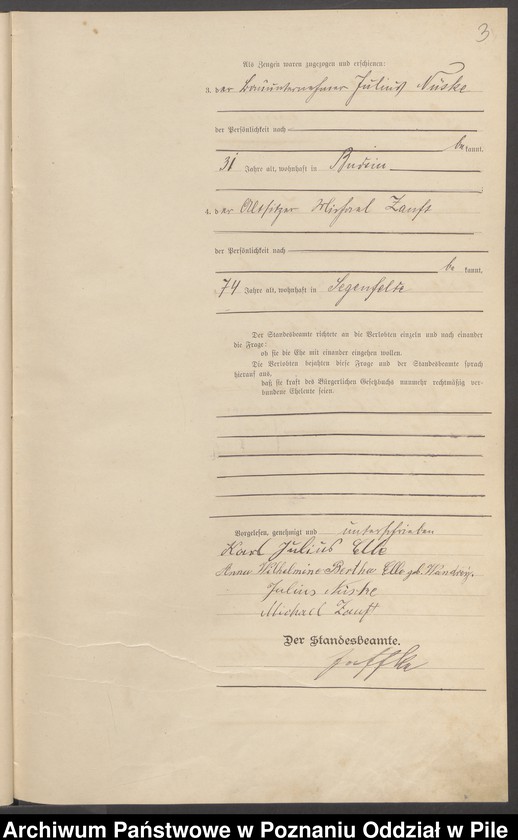 3
Als Zeugen waren zugezogen und erschienen:
3. der Bauunternehmer Julius Nüske
der Persönlichkeit nach
bekannt.
31 Jahre alt, wohnhaft in Budsin
4. der Altsitzer Michael Zanft
der Persönlichkeit nach
be kannt.
74 Jahre alt, wohnhaft in Segenfelde
Der Standesbeamte richtete an die Verlobten einzeln und nach einander
die Frage:
ob sie die Ehe mit einander eingehen wollen.
Die Verlobten bejahten diese Frage und der Standesbeamte sprach
hierauf aus,
daß sie kraft des Bürgerlichen Gesetzbuchs nunmehr rechtmäßig ver-
bundene Eheleute seien.
Vorgelesen, genehmigt und unterschrieben
Karl Julius Elle
Anna Wilhelmine Bertha Elle geb.
Julius Nüske
Michael Zanft
Der Standesbeamte.
Archiwum Państwowe w Poznaniu Oddział w Pile